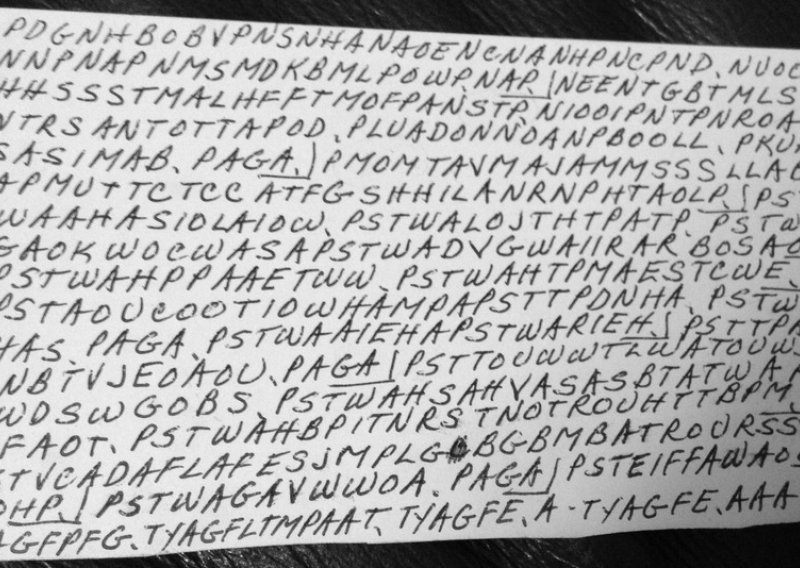 PDGNHBOBVPNSNHANAOENCNANHPNCPND, NUOC
NNPNAPNMSMDKBMLPOWP,NAP,|NEENTGBTMLS
HHSSSTMALHFFTMOFPANSTP,NIOOIPNTPNROA
NTRSANTOTTAPOD, PLUADONNOANPBOOLL, PKU
SASIMAB, PAGA,|PMOMTAVMAJAMMSSSLLAC
APMUTTCTCCATFGSHHILANRNPHTAOLP,|PST
WAAHASIOLAIOW, PSTWALOJTHTPATP, PSTW
GAOKWOCWASAPSTWADVGWAIIRARBOSAO
PSTWAHPPAAETWW, PSTWAHTPMAESTCWE,
PSTAOUCOOTIOWHAMPAPSTTPDNHA, PSTW
HAS, PAGA, PSTWAAIEHAPSTWARIEH,|PSTTPA
NBTVJEOAOU, PAGA|PSTTOUWWTLWATOUWS
WDSWGOBS, PSTWAHSAHVASASBTATWAP
FAOT, PSTWAHBPITNRSTNOTROUHTTBPM,
TVCADAFLAFESJMPLG BGBMBATROURSS
OHP,|PSTWAGAVWWOA, PAGA|PSTEIFFAWAOS
AGFPFG, TYAGFLTMPAAT, TYAGFE, A-TYAGFE, AAA